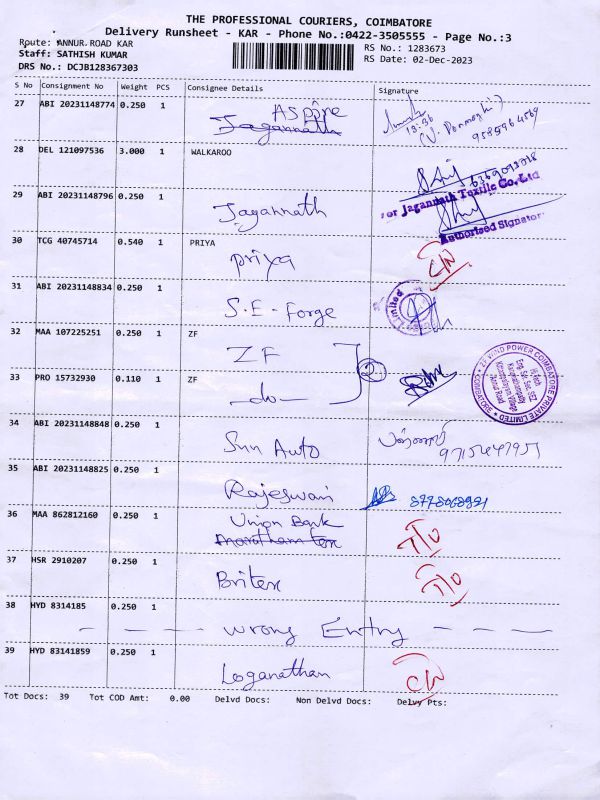 THE PROFESSIONAL COURIERS, COIMBATORE
Delivery Runsheet - KAR - Phone No.:0422-3505555 - Page No.:3
Route: ANNUR ROAD KAR
RS No.: 1283673
Staff: SATHISH KUMAR
RS Date: 02-Dec-2023
DRS No.: DCJB128367303
S No Consignment No Weight PCS Consignee Details Signature
27 ABI 20231148774 0.250 1 Aspire
Jagannath
13:36
28 DEL 121097536 3.000 1 WALKAROO
29 ABI 20231148796 0.250 1 Jagannath
For Jagannath Textile Co., Ltd
Authorised Signatory
30 TCG 40745714 0.540 1 PRIYA
priya
31 ABI 20231148834 0.250 1 S.E-Forge
Limited
32 MAA 107225251 0.250 1 ZF
ZF
2
33 PRO 15732930 0.110 1 ZF
-do-
ZF WIND POWER COIMBATORE PRIVATE LIMITED
34 ABI 20231148848 0.250 1 Sun Auto
35 ABI 20231148825 0.250 1 Rajeswari
36 MAA 862812160 0.250 1 Union Bank
T/O
37 HSR 2910207 0.250 1 Britex
T/O
38 HYD 8314185 0.250 1
- - - wrong Entry - - - -
39 HYD 83141859 0.250 1 Loganathan
Tot Docs: 39 Tot COD Amt: 0.00 Delvd Docs: Non Delvd Docs: Delvy Pts: